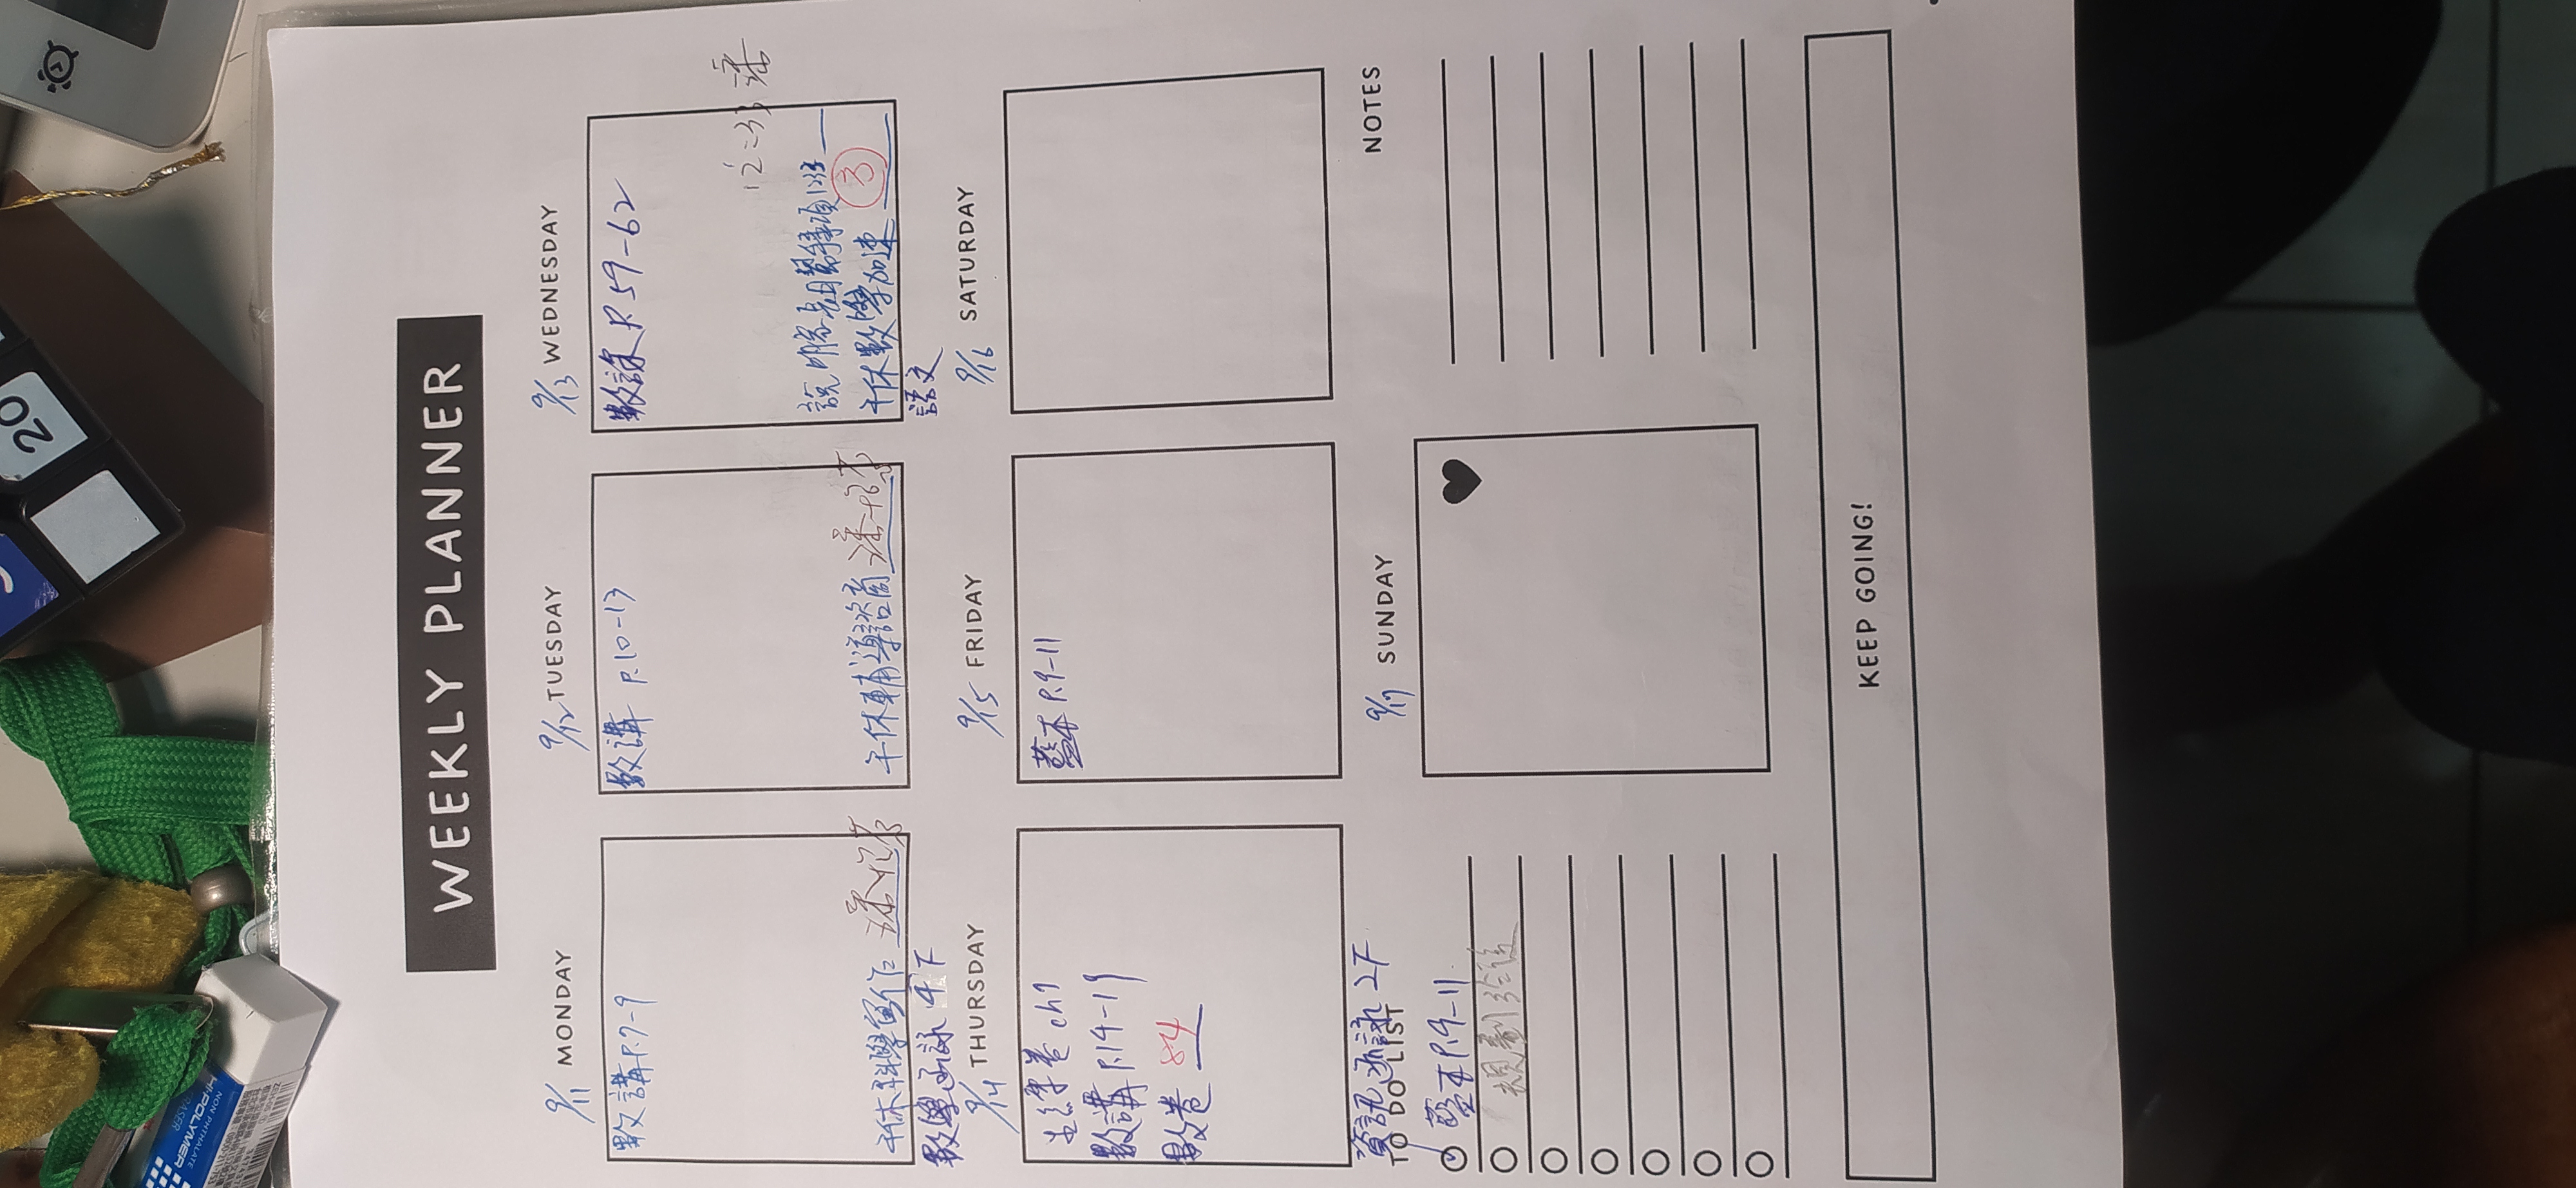 20
HI-POLYMER
ERASER
NON PHTHALATE
WEEKLY PLANNER
9/11 MONDAY
數講 P.7-9
午休科學寫作
數學函詠 4下
9/12 TUESDAY
數講 P.10-13
午休輔導諮商
9/13 WEDNESDAY
數課 P.59-62
12:33
午休數學加速
語文
9/14 THURSDAY
生練卷 ch1
數講 P.14-19
數卷 84
資訊函詠 2F
9/15 FRIDAY
藍本 P.9-11
9/16 SATURDAY
TO DO LIST
藍本 P.9-11
規劃
9/17 SUNDAY
NOTES
KEEP GOING!